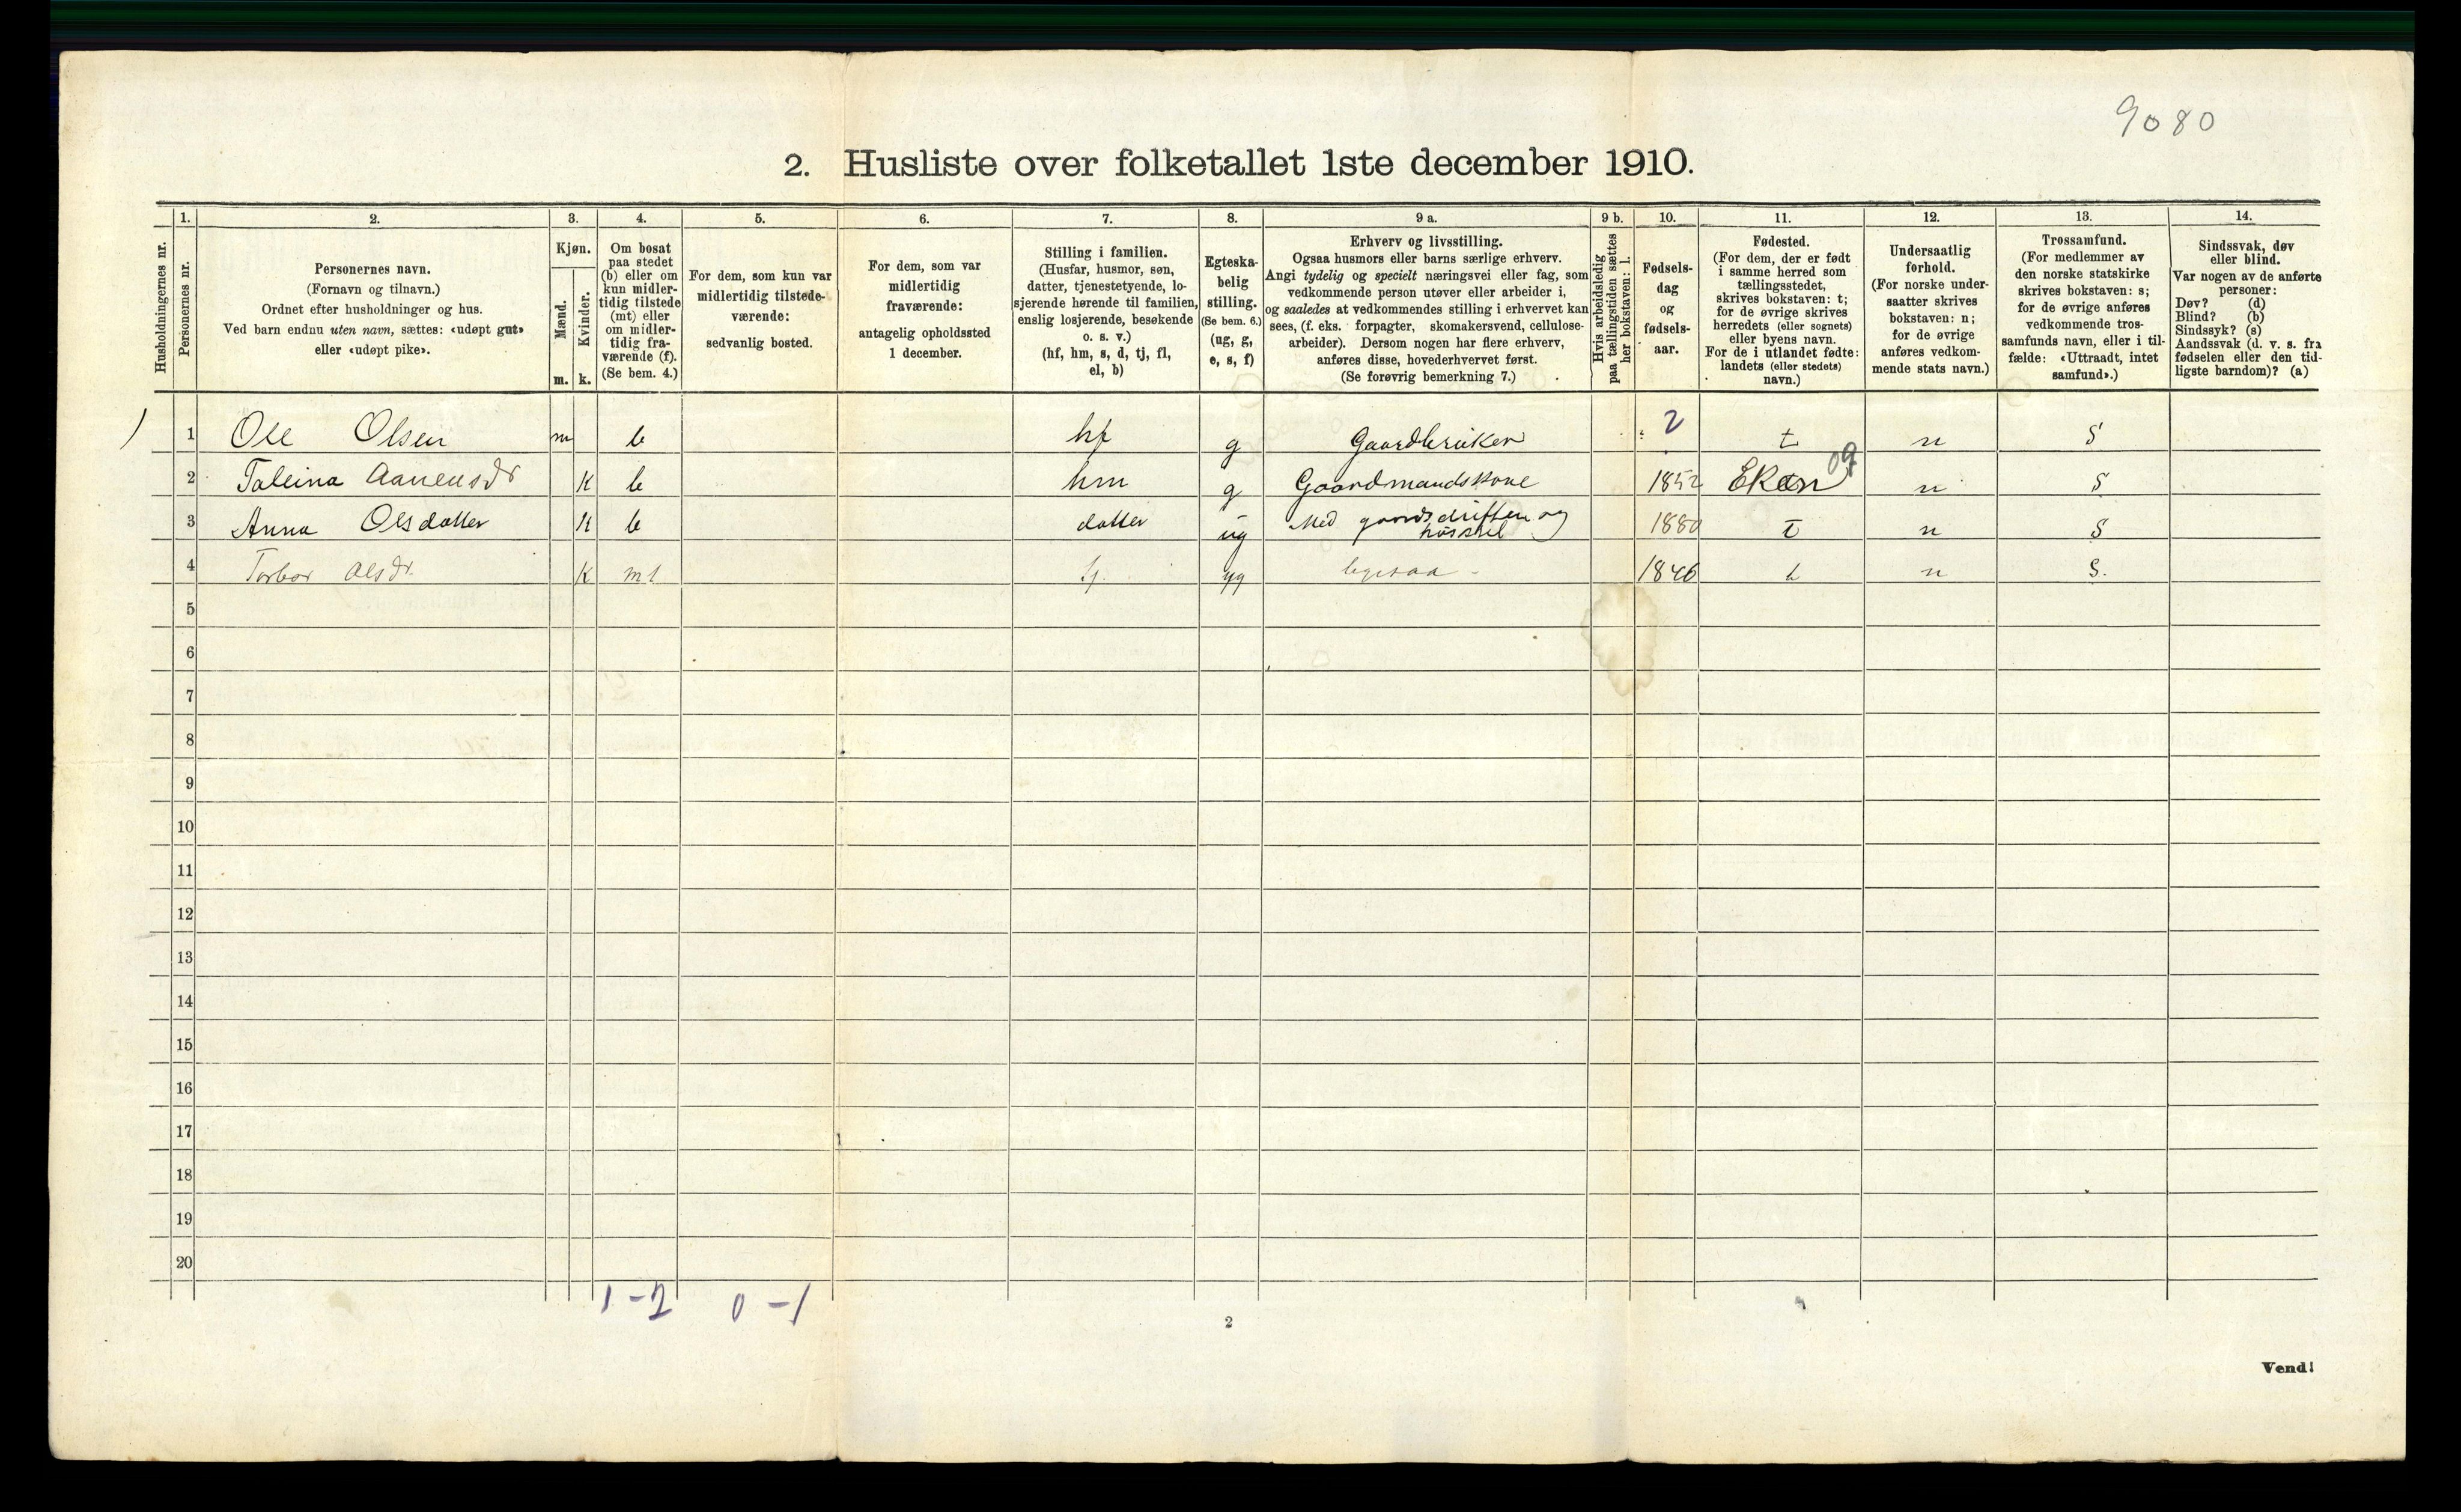 9080
2. Husliste over folketallet 1ste december 1910.
Husholdningernes nr.
1.
Personernes nr.
2.
Personernes navn.
(Fornavn og tilnavn.)
Ordnet efter husholdninger og hus.
Ved barn endnu uten navn, sættes: «udøpt gut»
eller «udøpt pike».
3.
Kjøn.
Mænd.
m.
Kvinder.
k.
4.
Om bosat
paa stedet
(b) eller om
kun midler-
tidig tilstede
(mt) eller
om midler-
tidig fra-
værende (f).
(Se bem. 4.)
5.
For dem, som kun var
midlertidig tilstede-
værende:
sedvanlig bosted.
6.
For dem, som var
midlertidig
fraværende:
antagelig opholdssted
1 december.
7.
Stilling i familien.
(Husfar, husmor, søn,
datter, tjenestetyende, lo-
sjerende hørende til familien,
enslig losjerende, besøkende
o. s. v.)
(hf, hm, s, d, tj, fl,
el, b)
8.
Egteska-
belig
stilling.
(Se bem. 6.)
(ug, g,
e, s, f)
9 a.
Erhverv og livsstilling.
Ogsaa husmors eller barns særlige erhverv.
Angi tydelig og specielt næringsvei eller fag, som
vedkommende person utøver eller arbeider i,
og saaledes at vedkommendes stilling i erhvervet kan
sees, (f. eks. forpagter, skomakersvend, cellulose-
arbeider). Dersom nogen har flere erhverv,
anføres disse, hovederhvervet først.
(Se forøvrig bemerkning 7.)
9 b.
Hvis arbeidsledig
paa tællingstiden sættes
her bokstaven: l.
10.
Fødsels-
dag
og
fødsels-
aar.
11.
Fødested.
(For dem, der er født
i samme herred som
tællingsstedet,
skrives bokstaven: t;
for de øvrige skrives
herredets (eller sognets)
eller byens navn.
For de i utlandet fødte:
landets (eller stedets)
navn.)
12.
Undersaatlig
forhold.
(For norske under-
saatter skrives
bokstaven: n;
for de øvrige
anføres vedkom-
mende stats navn.)
13.
Trossamfund.
(For medlemmer av
den norske statskirke
skrives bokstaven: s;
for de øvrige anføres
vedkommende tros-
samfunds navn, eller i til-
fælde: «Uttraadt, intet
samfund».)
14.
Sindssvak, døv
eller blind.
Var nogen av de anførte
personer:
Døv? (d)
Blind? (b)
Sindssyk? (s)
Aandssvak (d. v. s. fra
fødselen eller den tid-
ligste barndom)? (a)
1 Ole Olsen m b hf g Gaardbruker 2 t n S
2 Taleina Aanensdr K b hm g Gaardmandskone 1852 Eken 09 n S
3 Anna Olsdatter K b datter ug Med gaardsdriften og
husstel 1880 t n S
4 Torbor Olsdr. K mt tj. ug 1846 t n S.
5
6
7
8
9
10
11
12
13
14
15
16
17
18
19
20
1-2 0-1
2
Vend!